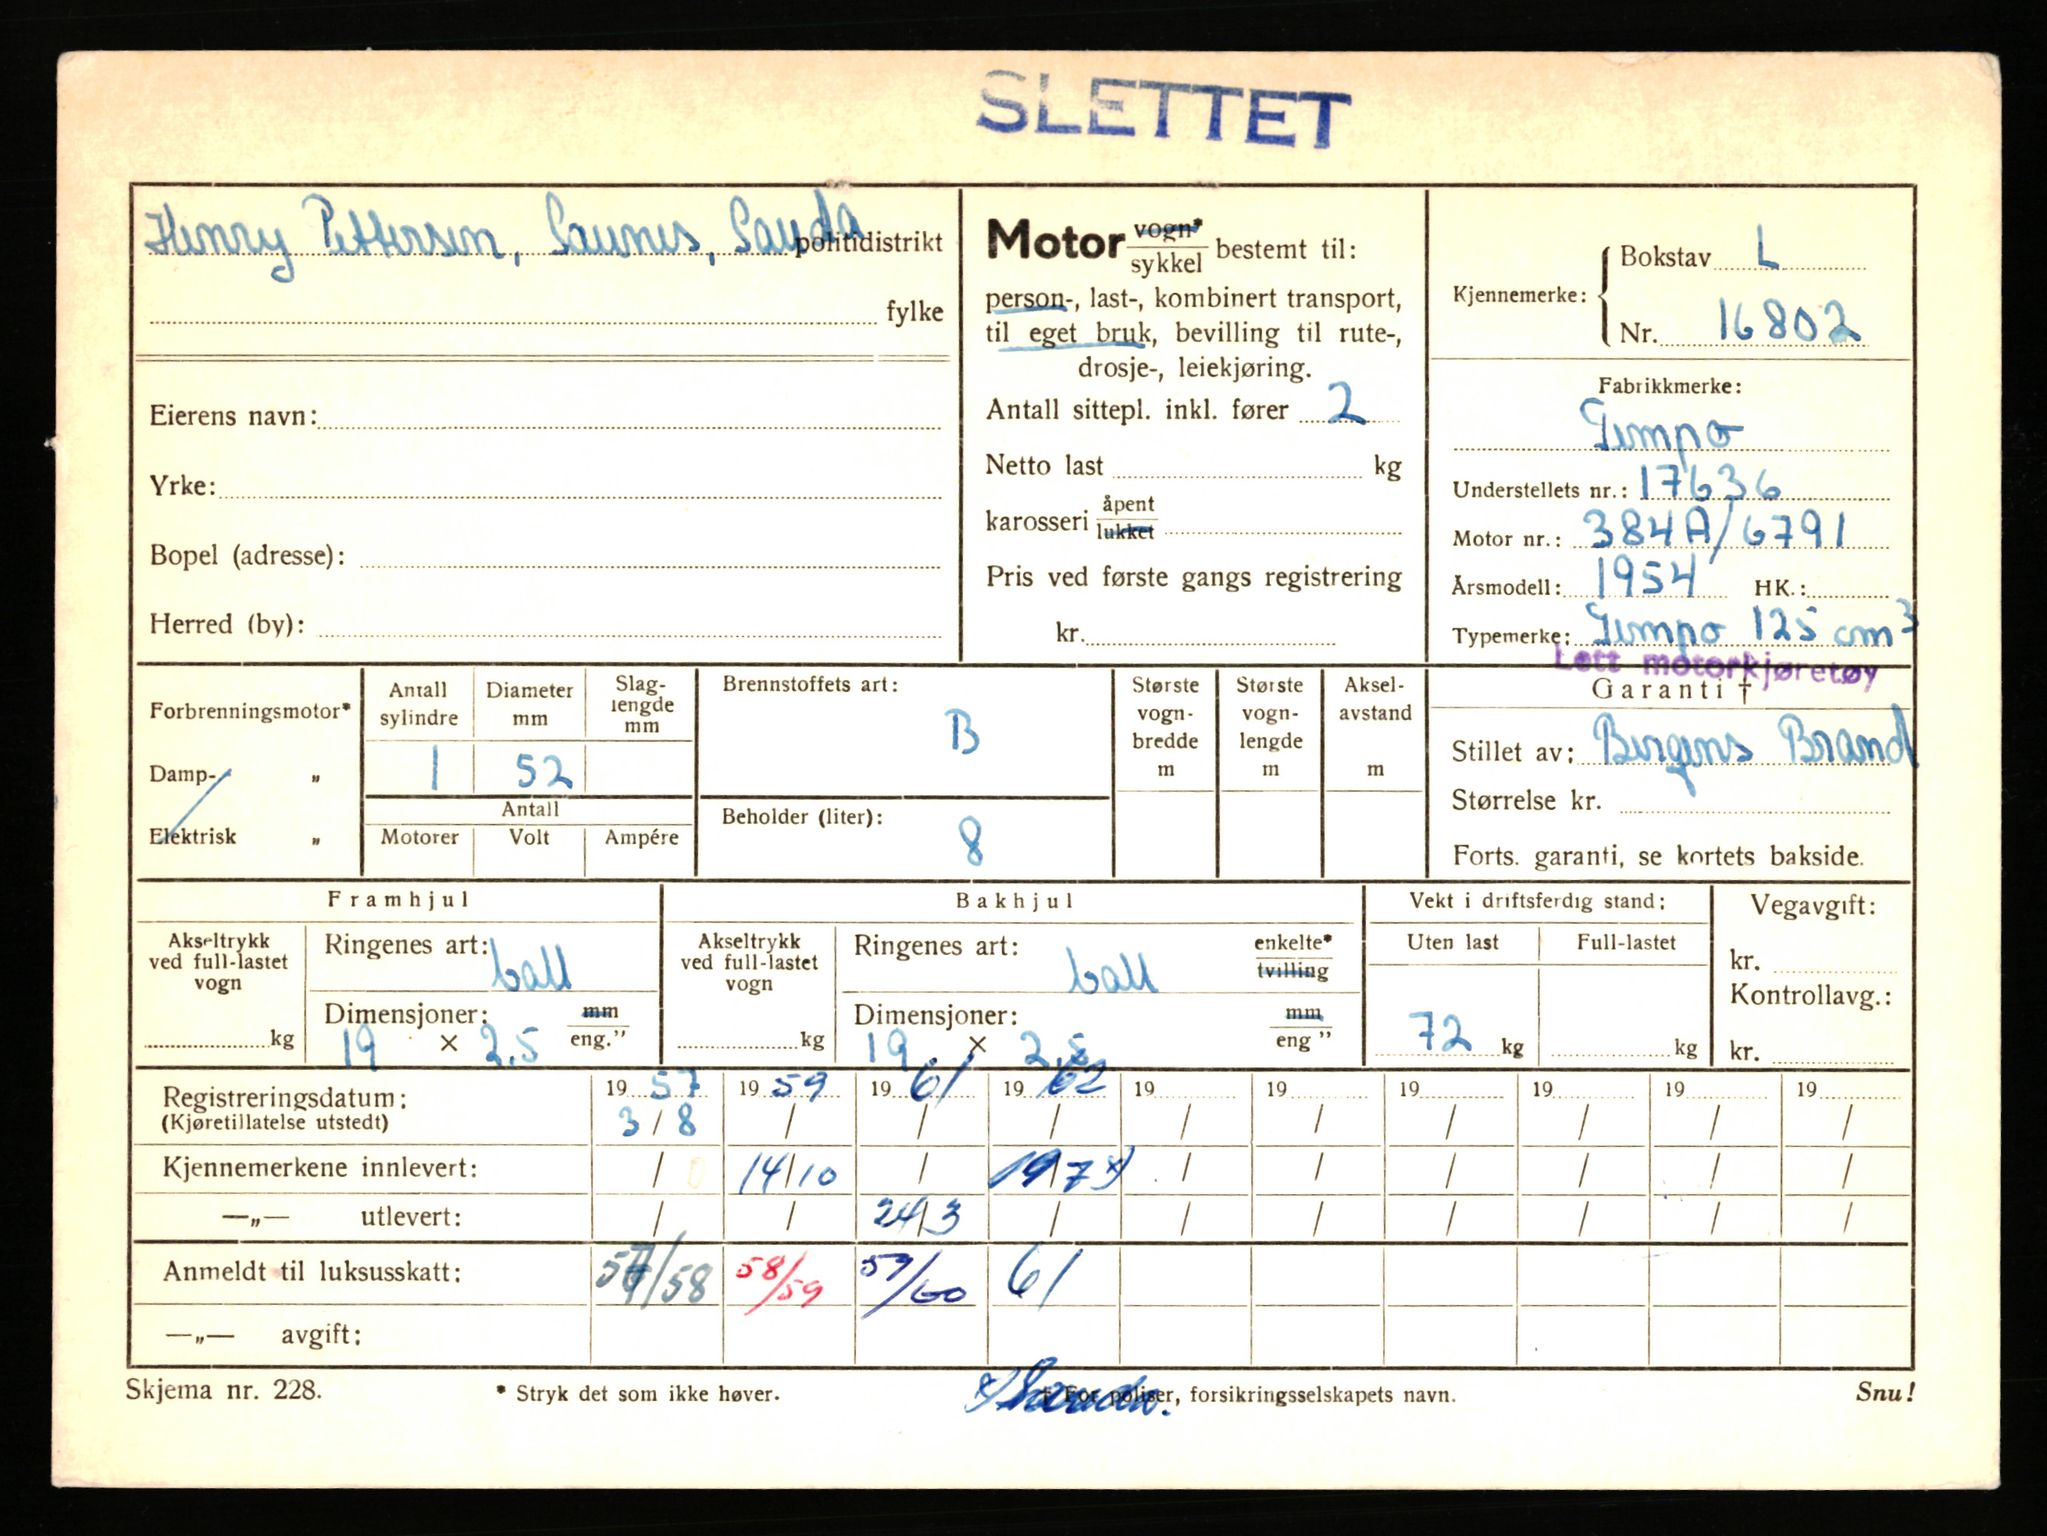 SLETTET
Henry Pettersen, Saunes, Sauda politidistrikt
fylke
Eierens navn:
Yrke:
Bopel (adresse):
Herred (by):
Motor vogn* sykkel bestemt til:
person-, last-, kombinert transport,
til eget bruk, bevilling til rute-,
drosje-, leiekjøring.
Antall sittepl. inkl. fører 2
Netto last kg
karosseri åpent lukket
Pris ved første gangs registrering
kr.
Kjennemerke: Bokstav L
Nr. 16802
Fabrikkmerke:
Gimpo
Understellets nr.: 17636
Motor nr.: 384A/6791
Årsmodell: 1954 HK.:
Typemerke: Gimpo 125 cm3
Lett motorkjøretøy
Forbrenningsmotor*
Damp- „
Elektrisk „
Antall sylindre
1
Diameter mm
52
Slaglengde mm
Antall
Motorer Volt Ampére
Brennstoffets art:
B
Beholder (liter):
8
Største vogn-bredde m
Største vogn-lengde m
Aksel-avstand m
Garanti †
Stillet av: Bergens Brand
Størrelse kr.
Forts. garanti, se kortets bakside.
Framhjul
Akseltrykk ved full-lastet vogn
kg
Ringenes art: ball
Dimensjoner: mm
19 × 2.5 eng."
Bakhjul
Akseltrykk ved full-lastet vogn
kg
Ringenes art: ball enkelte* tvilling
Dimensjoner: mm
19 × 2.5 eng "
Vekt i driftsferdig stand:
Uten last Full-lastet
72 kg kg
Vegavgift:
kr.
Kontrollavg.:
kr.
Registreringsdatum: 19 57 19 59 19 61 19 62 19 19 19 19 19 19
(Kjøretillatelse utstedt) 3/8 / / / / / / / / /
Kjennemerkene innlevert: / 14/10 / 19/7 x) / / / / / /
—„— utlevert: / / 24/3 / / / / / / /
Anmeldt til luksusskatt: 57/58 58/59 59/60 61
—„— avgift:
Skjema nr. 228. * Stryk det som ikke høver. x) † For poliser, forsikringsselskapets navn. Snu!